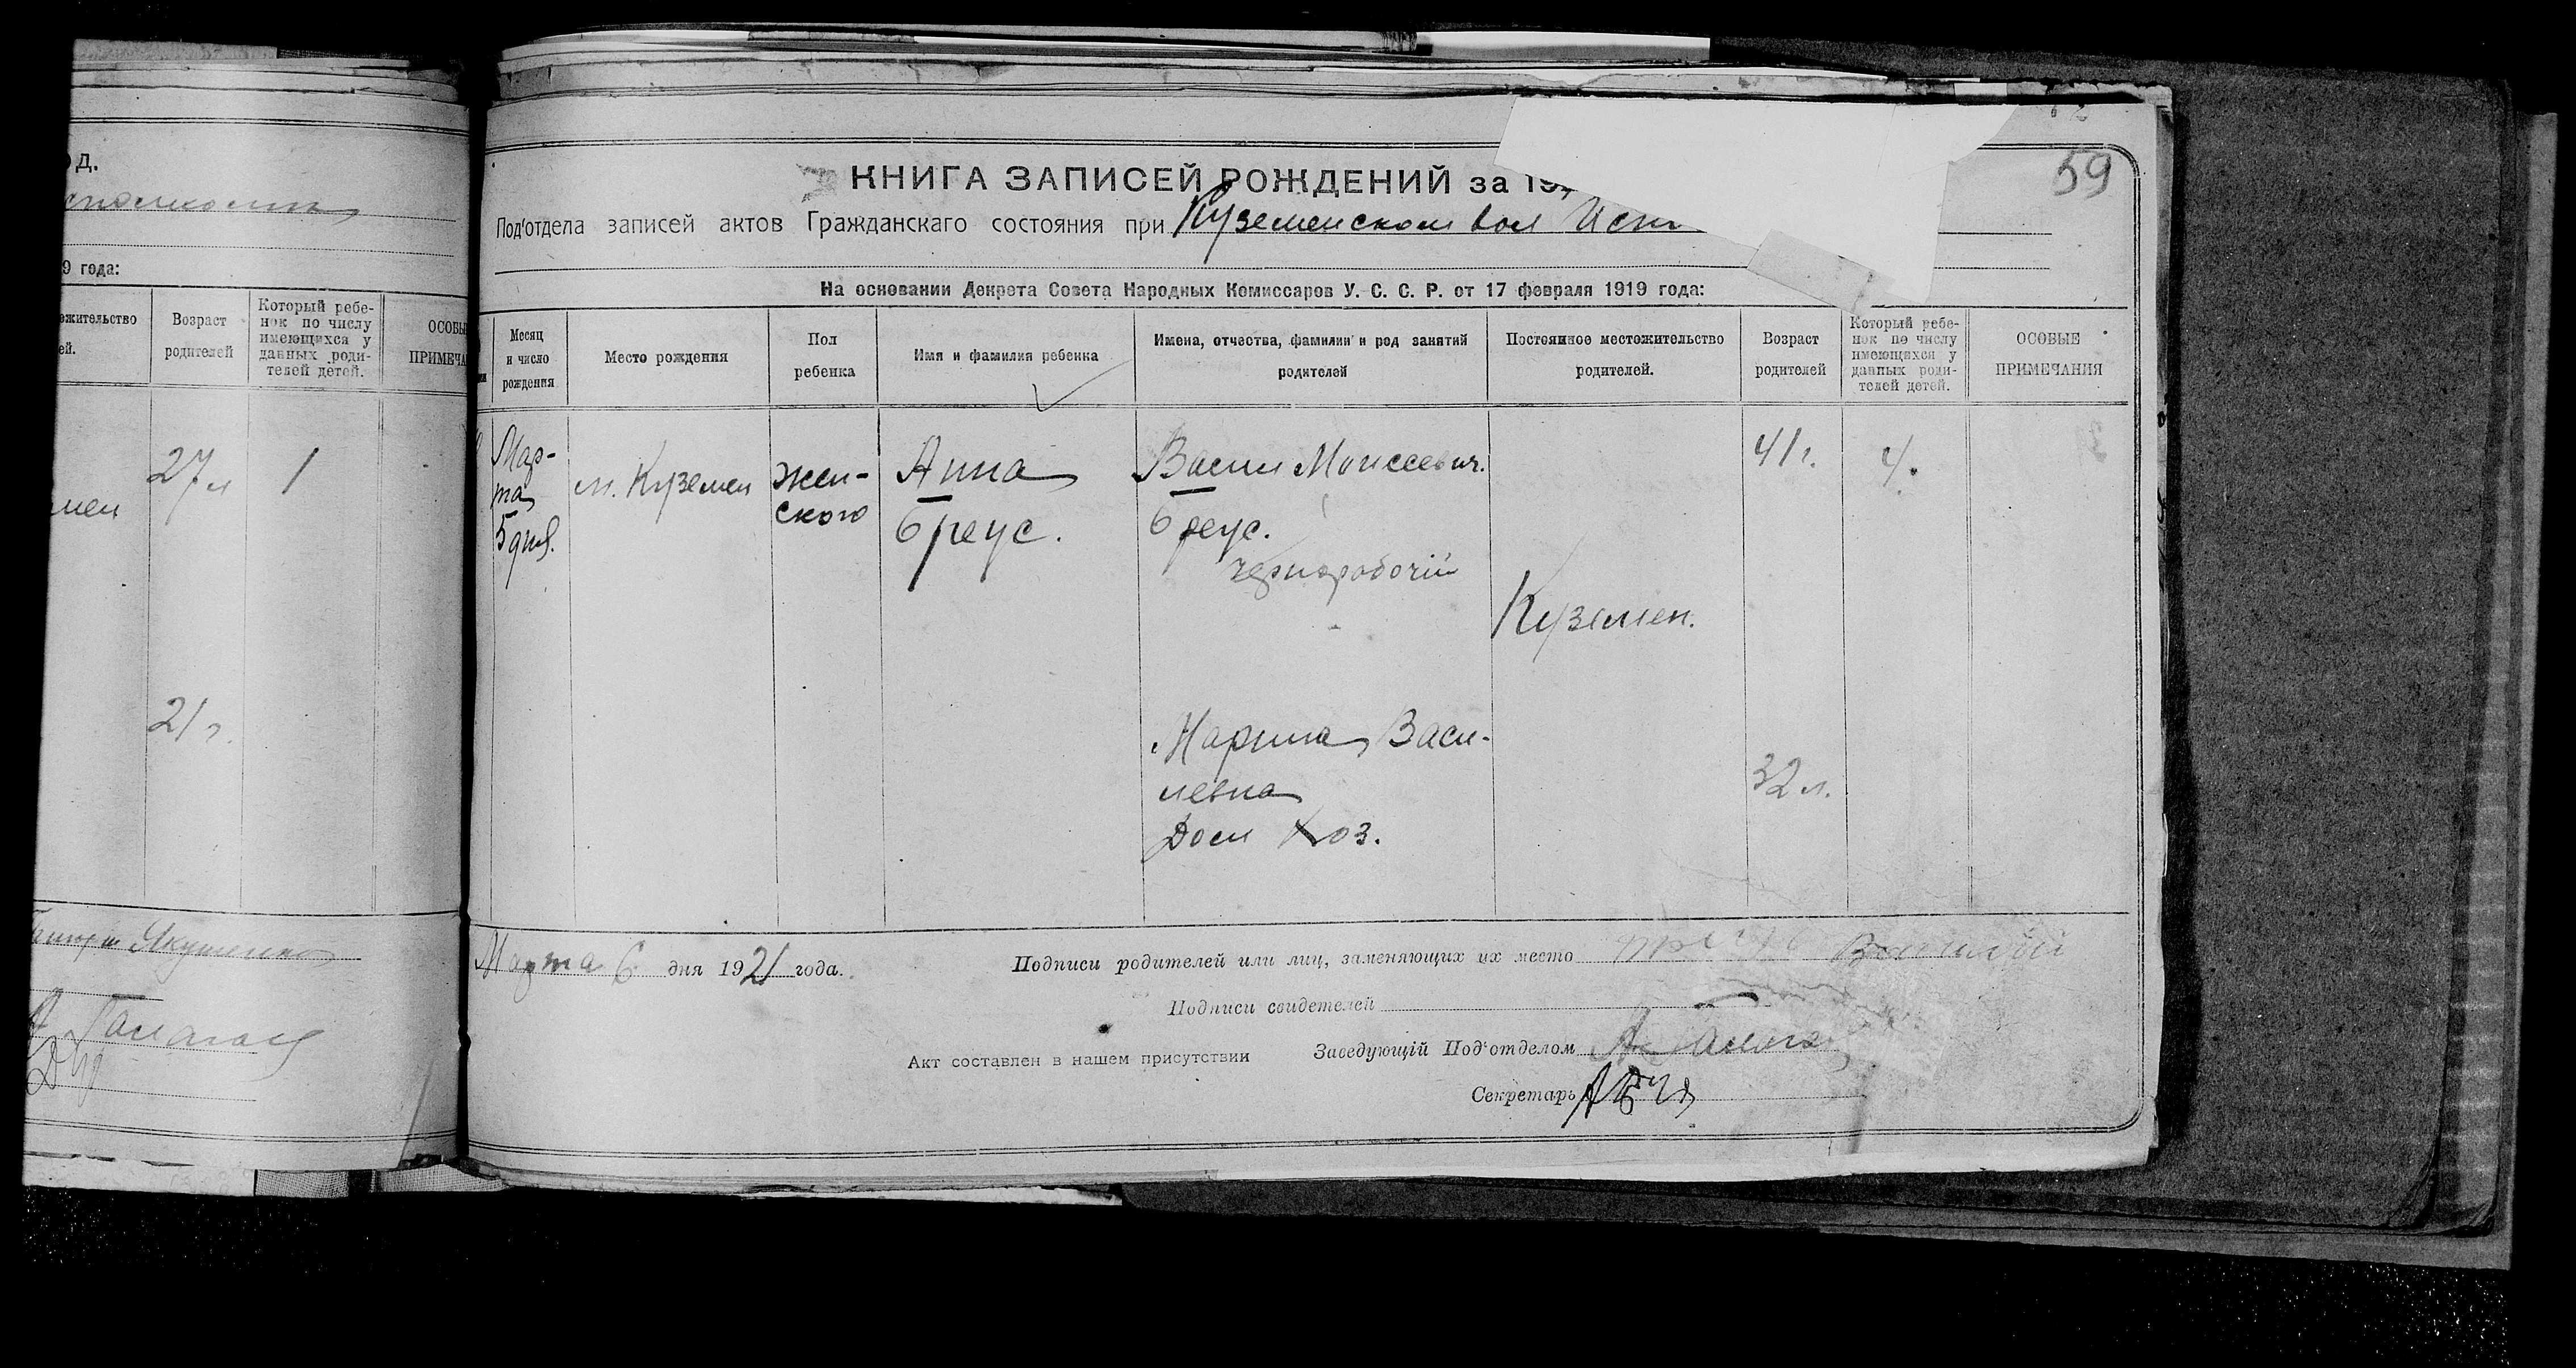 д.
9 года:
ожительство
ей.
Возраст
родителей
Который ребе-
нок по числу
имеющихся у
данных роди-
телей детей.
ОСОБЫ
ПРИМЕЧА
мен
27 л
1
21 г.
Якушенко
59
КНИГА ЗАПИСЕЙ РОЖДЕНИЙ за 19
Под'отдела записей актов Гражданскаго состояния при Куземенском вол Исп
На основании Декрета Совета Народных Комиссаров У. С. С. Р. от 17 февраля 1919 года:
Месяц
и число
рождения
Место рождения
Пол
ребенка
Имя и фамилия ребенка
Имена, отчества, фамилии и род занятий
родителей
Постоянное местожительство
родителей.
Возраст
родителей
Который ребе-
нок по числу
имеющихся у
данных роди-
телей детей.
ОСОБЫЕ
ПРИМЕЧАНИЯ
Мар-
та
5 дня.
м. Куземен
Жен-
ского
Анна
Бреус.
Васил Моисеевич.
Бреус.
Чернорабочій
Куземен.
41 г.
4.
Марина Васи-
левна
Дом Хоз.
32 л.
Марта 6 дня 1921 года.
Подписи родителей или лиц, заменяющих их место Василій
Подписи свидетелей
Акт составлен в нашем присутствии
Заведующій Под'отделом
Секретарь